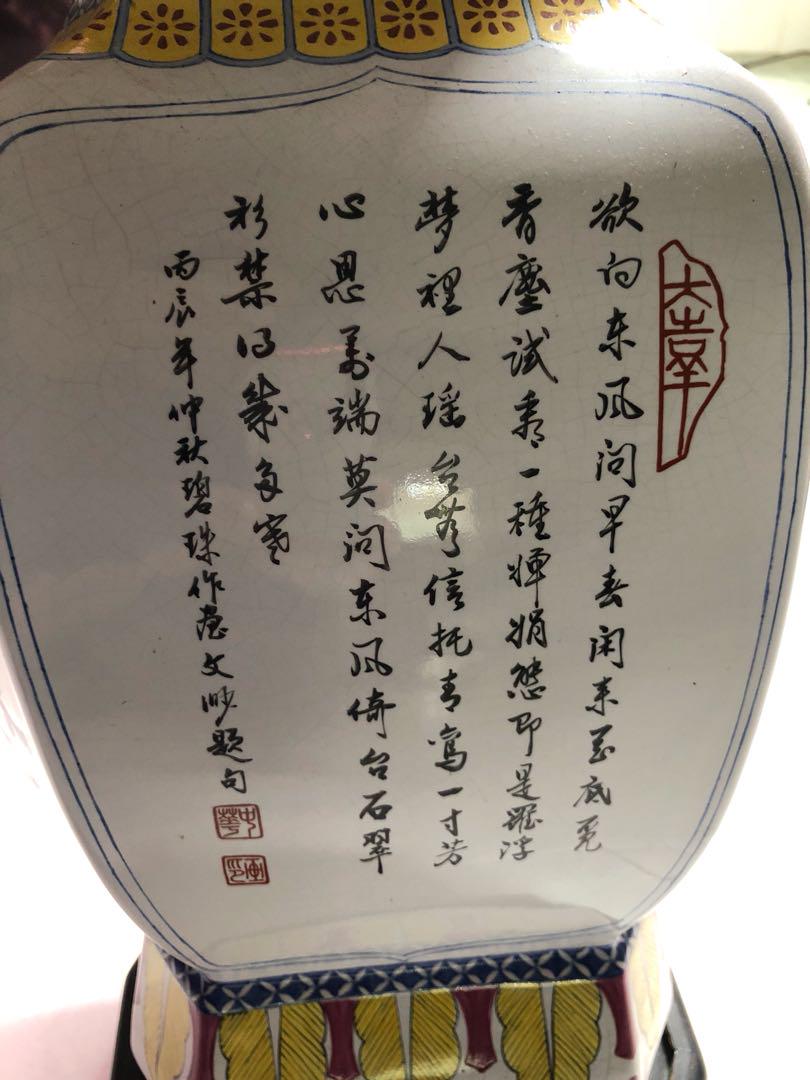 欲向东风问早春闲来花底觅
香尘试看一种婵娟態即是羅浮
梦裡人瑶台無信托青鸾一寸芳
心思万端莫问东风倚台石翠
衫禁得幾多寒
丙辰年仲秋碧珠作画文 题句